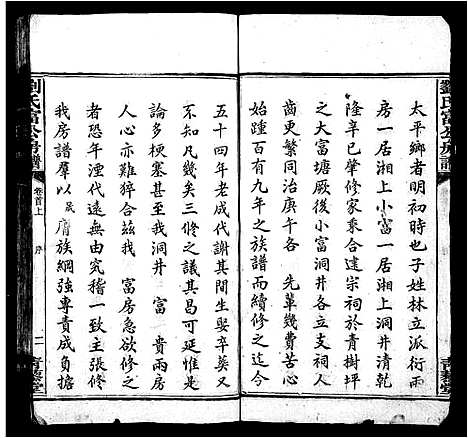 劉氏富公房譜
太平鄉者明初時也子姓林立派衍兩
房一居湘上小富一居湘上洞井清乾
隆辛已肇修家乘合建宗祠於青樹坪
之大富塘厥後小富洞井各立支祠人
齒更繁同治庚午各　先輩幾費苦心
踵而續修之迄今
百有九年之族譜
五十四年老成代謝其間生娶卒葬又
不知凡幾矣三修之議其曷可延惟是
論多梗塞甚至我洞井　富　貴兩房
人心亦難猝合茲我　富房急欲修輯
者恐年湮代遠無由究稽一致主張修
我房譜羣以　膺族綱強專責成負擔
劉氏富公房譜
卷首上
序
二
青藜堂